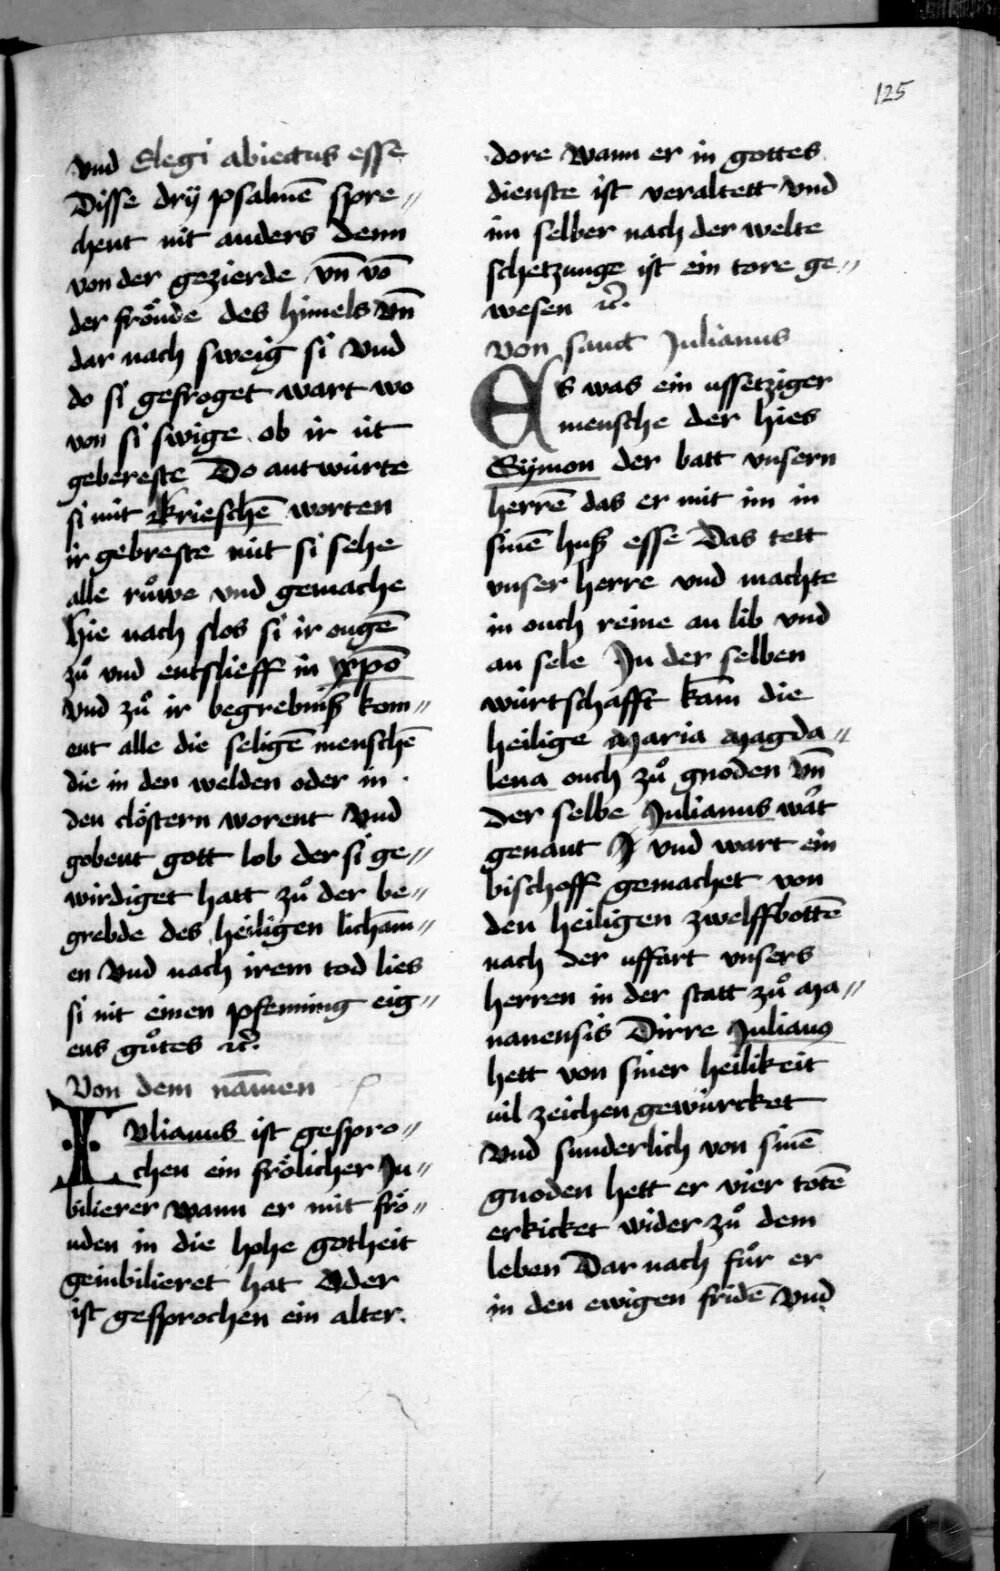 125
vnd Elegi abiectus esse
Disse drÿ psalmē spre〃
chent nit anders denn
von der gezierde vn̄ vō
der froͤude des himels vn̄
dar nach sweig si vnd
do si gefroget wart wo
von si swige ob ir üt
gebereste Do antwürte
si mit krieschē worten
ir gebreste nüt si sehe
alle ruͦwe vnd gemache
hie nach slos si ir ougē
zuͦ vnd entslieff in xpō
vnd zuͦ ir begrebniß kom〃
ent alle die seligē menschē
die in den welden oder in
den cloͤstern worent vnd
gobent gott lob der si ge〃
wirdiget hatt zuͦ der be〃
grebde des heiligen licham̄〃
en vnd nach irem tod lies
si nit einen pfenning eig〃
ens guͦtes ⁊c̄.
Von dem nam̄en
IVlianus ist gespro〃
chen ein froͤlicher Ju〃
bilierer wann er mit froͤ〃
uden in die hohe gotheit
geiubilieret hat Oder
ist gesprochen ein alter.
dore wann er in gottes
dienste ist veraltett vnd
im selber nach der welte
schetzunge ist ein tore ge〃
wesen ⁊c̄.
von sanct Julianus
ES was ein ussetziger
mensche der hies
Sÿmon der batt vnsern
herrē das er mit im in
sinē huß esse Das tett
vnser herre vnd machte
in ouch reine an lib vnd
an sele In der selben
würtschafft kam̄ die
heilige maria magda〃
lena ouch zuͦ gnoden vn̄
der selbe Julianus wʼt
genant vnd wart ein
bischoff gemachet von
den heiligen zwelffbottē
nach der uffart vnsers
herren in der statt zuͦ ma〃
nanensis Dirre Julianꝰ
hett von siner heilikeit
uil zeichen gewürcket
vnd sunderlich von sinē
gnoden hett er vier totē
erkicket wider zuͦ dem
leben Dar nach fuͦr er
in den ewigen fridē vnd